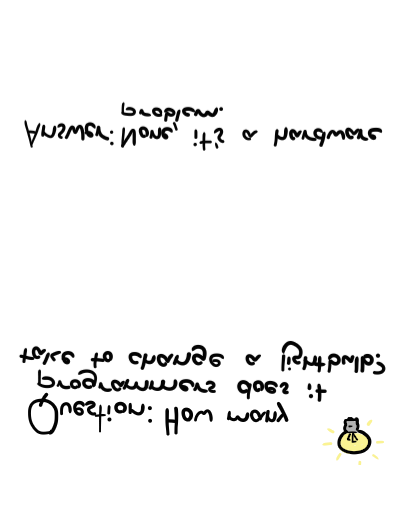 Question: How many
programmers does it
take to change a lightbulb?
Answer: None, it's a hardware
problem.